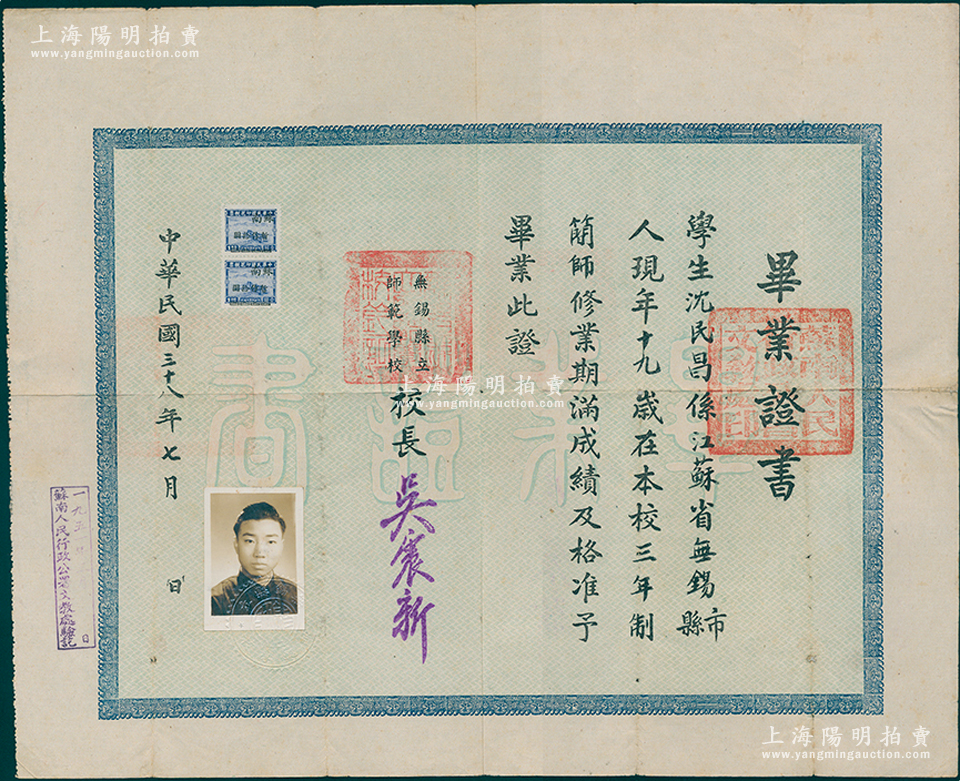 上海陽明拍賣
www.yangmingauction.com
畢業證書
學生沈民昌係江蘇省無錫市縣
人現年十九歲在本校三年制
簡師修業期滿成績及格准予
畢業此證
無錫縣立
師範學校
校長
吳震新
中華民國三十八年七月 日
蘇南
蘇南
上海陽明拍賣
www.yangmingauction.com
一九五
日
蘇南人民行政公署文教處驗訖
畢業證書
上海陽明拍賣
www.yangmingauction.com